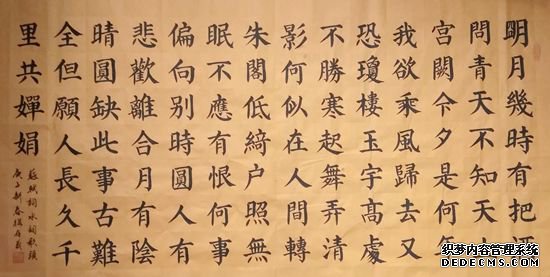 明月幾時有把酒
問青天不知天上
宫闕今夕是何年
我欲乘風歸去又
恐瓊樓玉宇髙處
不勝寒起舞弄清
影何似在人間轉
朱閣低綺户照無
眠不應有恨何事
偏向别時圓人有
悲歡離合月有陰
晴圓缺此事古難
全但願人長久千
里共嬋娟
蘇軾詞水調歌頭
庚子新春
织梦内容管理系统
DEDECMS.COM